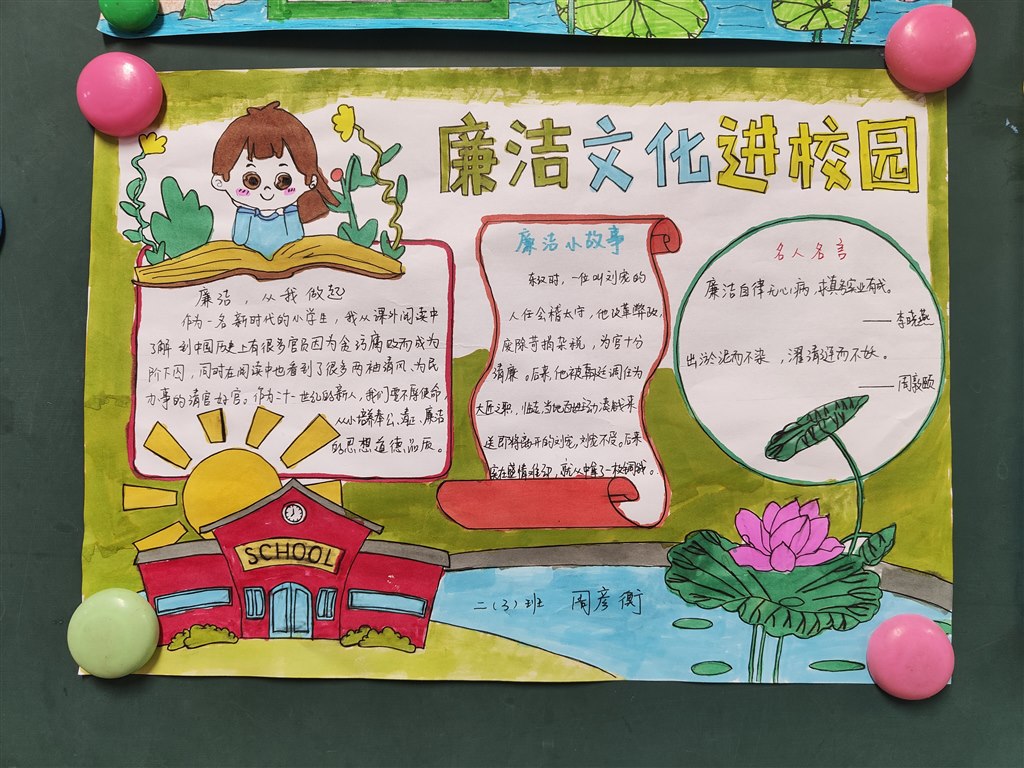 廉洁文化进校园
廉洁，从我做起
作为一名新时代的小学生，我从课外阅读中
了解到中国历史上有很多官员因为贪污腐败而成为
阶下囚，同时在阅读中也看到了很多两袖清风、为民
办事的清官好官。作为二十一世纪的新人，我们要不辱使命，
从小培养奉公、清正、廉洁
的思想道德品质。
廉洁小故事
东汉时，一位叫刘宠的
人任会稽太守，他改革弊政，
废除苛捐杂税，为官十分
清廉。后来他被朝廷调任为
大匠之职，临走，当地百姓主动凑钱来
送即将离开的刘宠，刘宠不受。后来
实在盛情难却，就从中拿了一枚铜钱。
名人名言
廉洁自律无心病，求真务实业有成。
——李晓燕
出淤泥而不染，濯清涟而不妖。
——周敦颐
SCHOOL
二（3）班 周彦衡